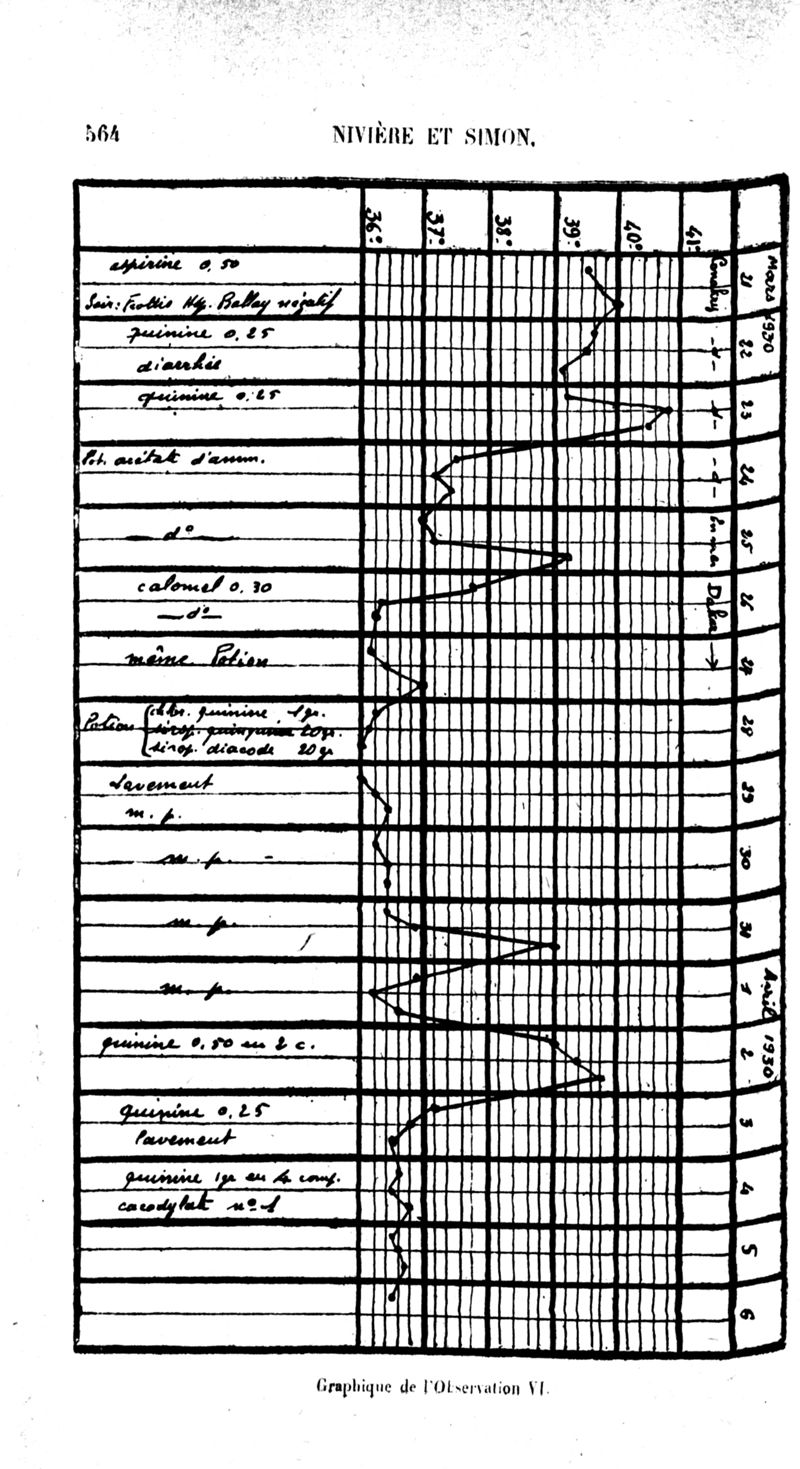 564
NIVIÈRE ET SIMON.
36°
37°
38°
39°
40°
41°
Mars 1930
aspirine 0,50
21
Conakry
Soir: Frottis Hôp. Ballay négatif
quinine 0,25
22
-d-
diarrhée
quinine 0,25
23
-d-
Pot. acétate d'amm.
24
-d-
d°
25
En mer
calomel 0,30
26
Dakar →
d°
même Potion
27
Potion
chlor. quinine 1 gr.
sirop. quinquina 20 gr.
sirop. diacode 20 gr
Lavement
29
m. p.
m. p. -
30
m. p.
31
Avril 1930
m. p.
1
quinine 0,50 en 2 c.
2
quinine 0,25
3
Lavement
quinine 1 gr en 4 comp.
4
cacodylate n° 1
5
6
Graphique de l'Observation VI.